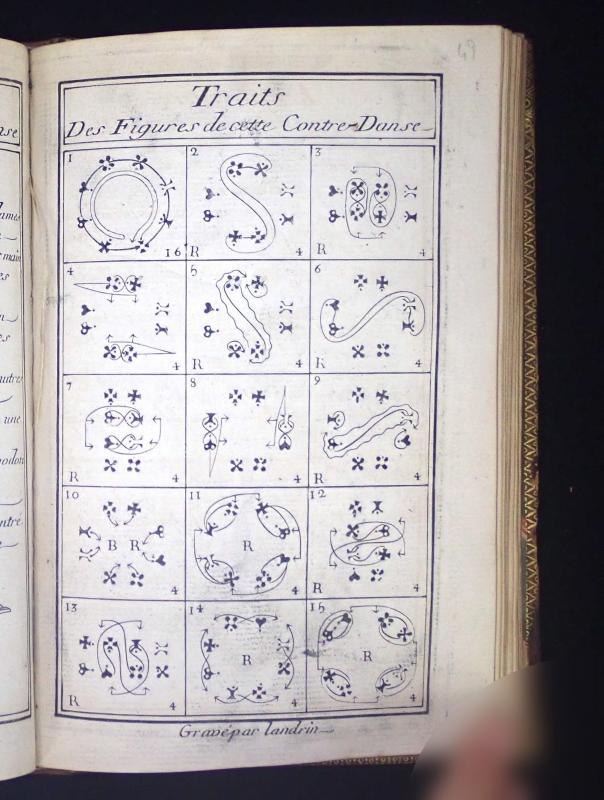 49
Traits
Des Figures de cette Contre-Danse
1 16
2 R 4
3 R 4
4 4
5 R 4
6 R 4
7 R 4
8 4
9 R 4
10 B R 4
11 R 4
12 R 4
13 R 4
14 R 4
15 R 4
Gravé par landrin
nse
ames
main
es
es
utres
une
ntré